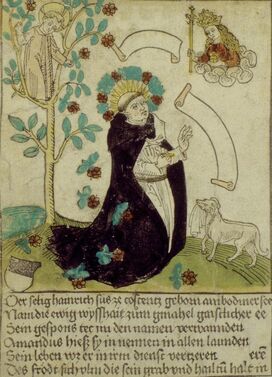 Der selig hainrich süs ze costentz geborn am bodmer see
Nam die ewig wysshait zum gmahel gaistlicher ee
Sein gespons tet im den namen verwannden
Amandus hiess sy in nennen in allen lannden
Sein leben vor er in irm dienst verezeren ere
Des frödt sich vlm die sein grab und hailtum halt in